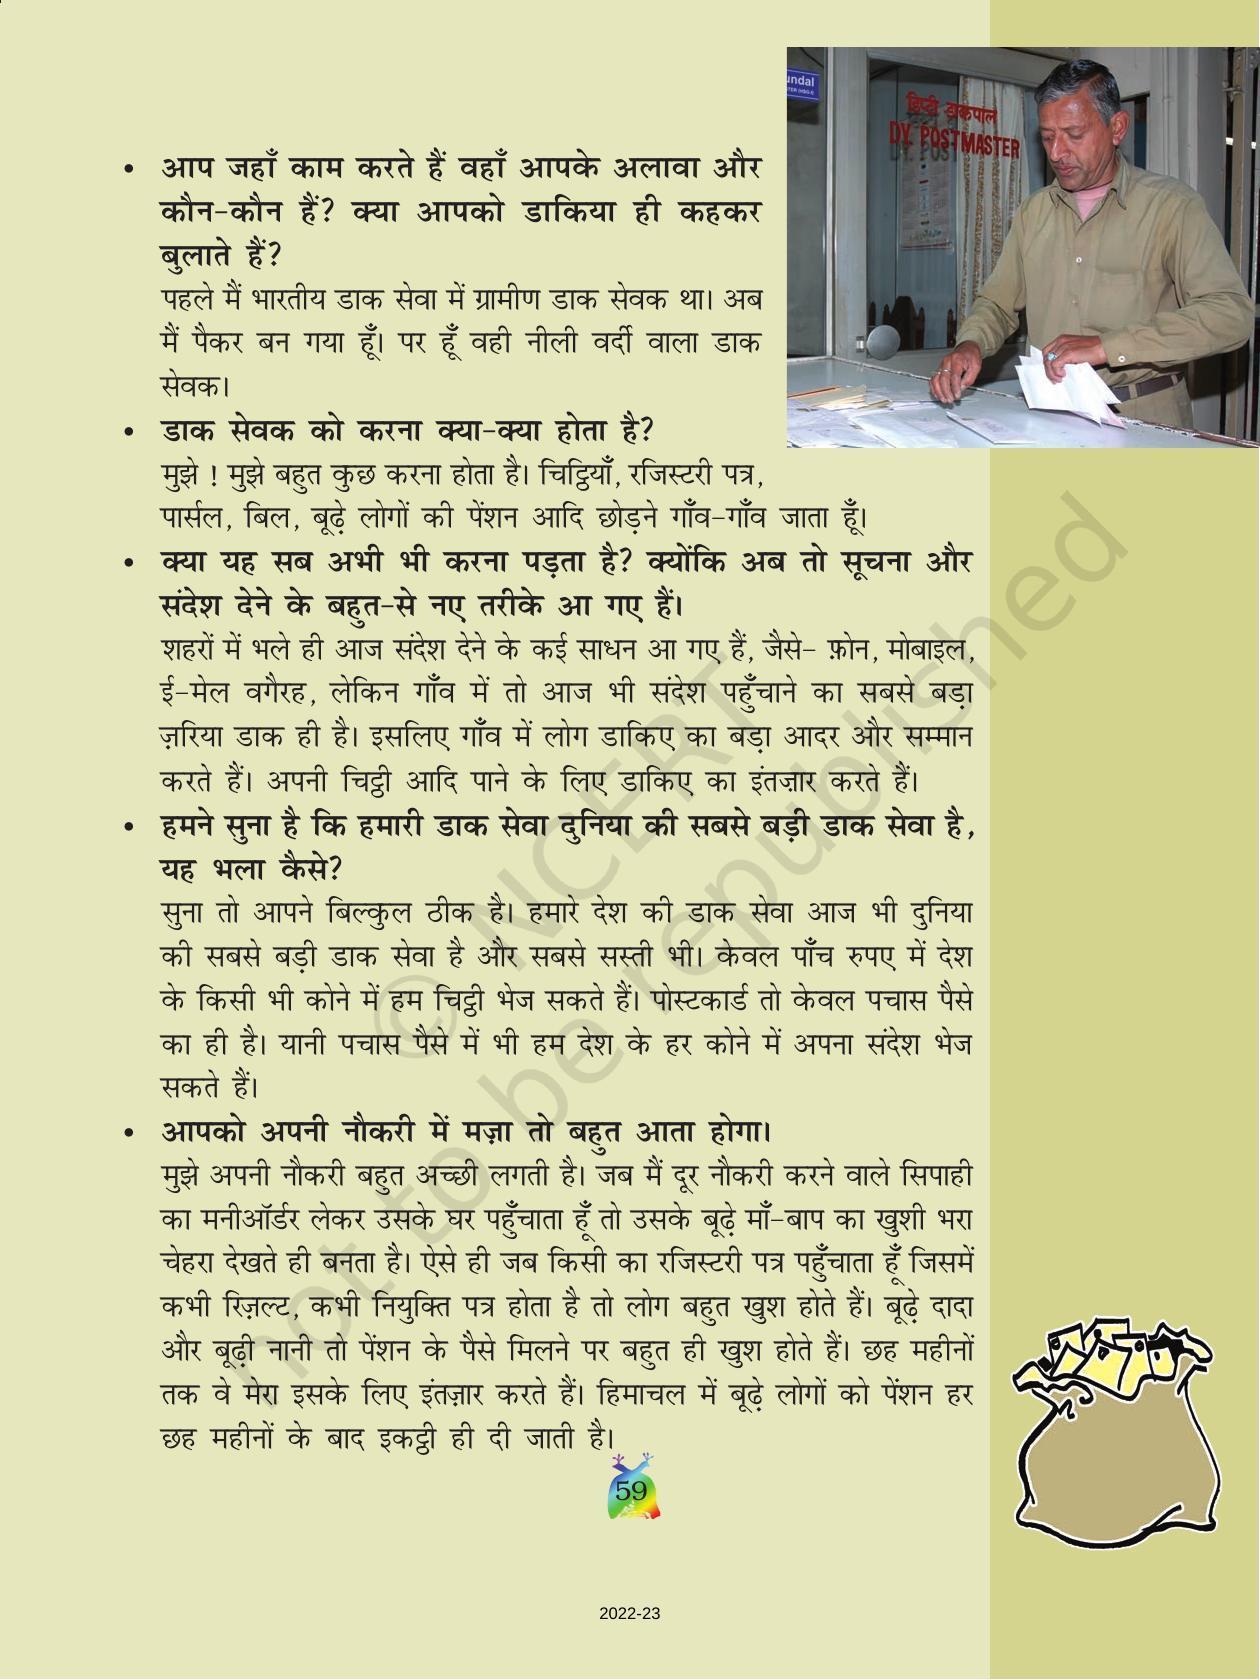 undal
डिप्टी डाकपाल
DY. POSTMASTER
• आप जहाँ काम करते हैं वहाँ आपके अलावा और
कौन-कौन हैं? क्या आपको डाकिया ही कहकर
बुलाते हैं?
पहले मैं भारतीय डाक सेवा में ग्रामीण डाक सेवक था। अब
मैं पैकर बन गया हूँ। पर हूँ वही नीली वर्दी वाला डाक
सेवक।
• डाक सेवक को करना क्या-क्या होता है?
मुझे ! मुझे बहुत कुछ करना होता है। चिट्ठियाँ, रजिस्टरी पत्र,
पार्सल, बिल, बूढ़े लोगों की पेंशन आदि छोड़ने गाँव-गाँव जाता हूँ।
• क्या यह सब अभी भी करना पड़ता है? क्योंकि अब तो सूचना और
संदेश देने के बहुत-से नए तरीके आ गए हैं।
शहरों में भले ही आज संदेश देने के कई साधन आ गए हैं, जैसे- फ़ोन, मोबाइल,
ई-मेल वगैरह, लेकिन गाँव में तो आज भी संदेश पहुँचाने का सबसे बड़ा
ज़रिया डाक ही है। इसलिए गाँव में लोग डाकिए का बड़ा आदर और सम्मान
करते हैं। अपनी चिट्ठी आदि पाने के लिए डाकिए का इंतज़ार करते हैं।
• हमने सुना है कि हमारी डाक सेवा दुनिया की सबसे बड़ी डाक सेवा है,
यह भला कैसे?
सुना तो आपने बिल्कुल ठीक है। हमारे देश की डाक सेवा आज भी दुनिया
की सबसे बड़ी डाक सेवा है और सबसे सस्ती भी। केवल पाँच रुपए में देश
के किसी भी कोने में हम चिट्ठी भेज सकते हैं। पोस्टकार्ड तो केवल पचास पैसे
का ही है। यानी पचास पैसे में भी हम देश के हर कोने में अपना संदेश भेज
सकते हैं।
• आपको अपनी नौकरी में मज़ा तो बहुत आता होगा।
मुझे अपनी नौकरी बहुत अच्छी लगती है। जब मैं दूर नौकरी करने वाले सिपाही
का मनीऑर्डर लेकर उसके घर पहुँचाता हूँ तो उसके बूढ़े माँ-बाप का खुशी भरा
चेहरा देखते ही बनता है। ऐसे ही जब किसी का रजिस्टरी पत्र पहुँचाता हूँ जिसमें
कभी रिज़ल्ट, कभी नियुक्ति पत्र होता है तो लोग बहुत खुश होते हैं। बूढ़े दादा
और बूढ़ी नानी तो पेंशन के पैसे मिलने पर बहुत ही खुश होते हैं। छह महीनों
तक वे मेरा इसके लिए इंतज़ार करते हैं। हिमाचल में बूढ़े लोगों को पेंशन हर
छह महीनों के बाद इकट्ठी ही दी जाती है।
© NCERT
not to be republished
59
2022-23